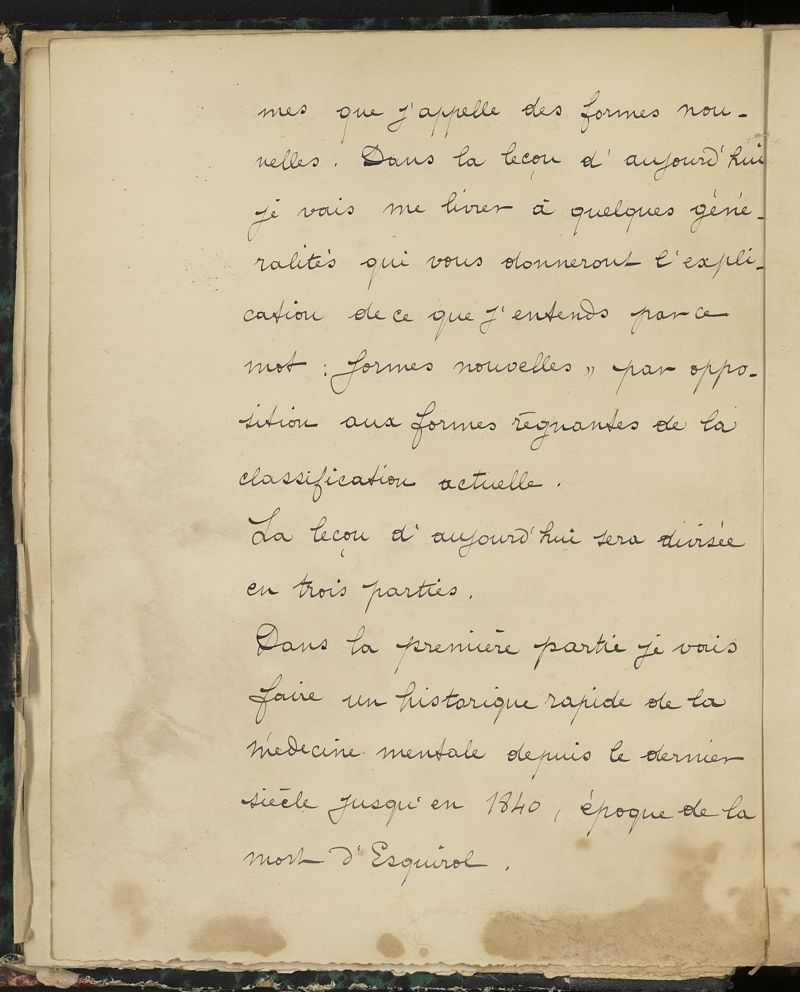 mes que j'appelle des formes nou-
velles. Dans la leçon d'aujourd'hui
je vais me livrer à quelques géné-
ralités qui vous donneront l'expli-
cation de ce que j'entends par ce
mot : formes nouvelles » par oppo-
sition aux formes régnantes de la
classification actuelle.
La leçon d'aujourd'hui sera divisée
en trois parties.
Dans la première partie je vais
faire un historique rapide de la
médecine mentale depuis le dernier
siècle jusqu'en 1840, époque de la
mort d'Esquirol.